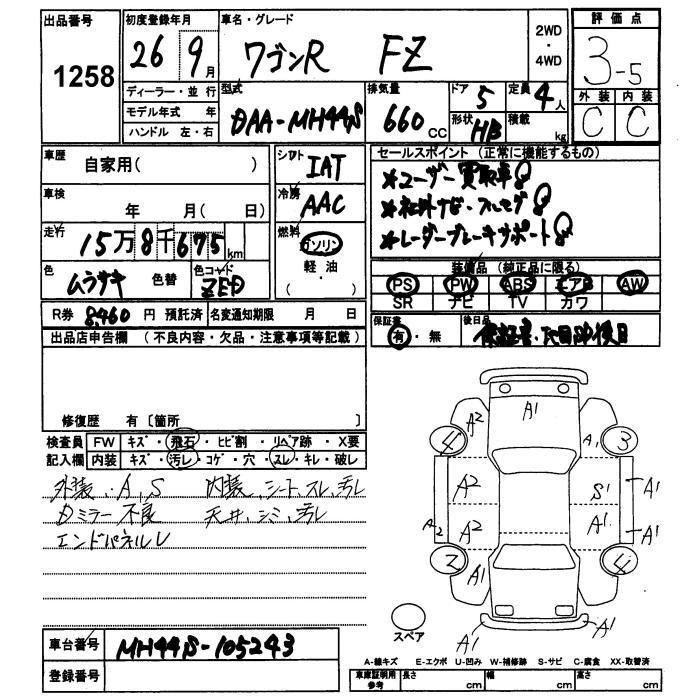 出品番号
1258
初度登録年月
26 9月
車名・グレード
ワゴンR FZ
2WD
・
4WD
評価点
3-5
外装 内装
C C
ディーラー・並行
モデル年式 年
ハンドル 左・右
型式
DAA-MH44S
排気量
660cc
ドア
5
形状
HB
定員
4人
積載
kg
車歴
自家用( )
車検
年 月( 日)
走行
15万8千675km
色
ムラサキ 色替
色コード
ZED
シフト
IAT
冷房
AAC
燃料
ガソリン
軽・油
( )
セールスポイント (正常に機能するもの)
*ユーザー買取車
*社外ナビ・フルセグ
*レーダーブレーキサポート
装備品 (純正品に限る)
PS PW ABS エアB AW
SR ナビ TV カワ
R券 8,460 円 預託済 名変通知期限 月 日
保証書
有・無
後日品
保証書・取説後日
出品店申告欄 (不良内容・欠品・注意事項等記載)
修復歴 有〔箇所 〕
検査員 FW キズ・飛石・ヒビ割・リペア跡・X要
記入欄 内装 キズ・汚レ・コゲ・穴・スレ・キレ・破レ
外装、A、S 内装、シート、スレ、汚レ
Dミラー不良 天井、シミ、汚レ
エンドパネルU
A1
A2 A1
4 3
A2 S1 A1
A2 A2 A1 A1
2 4
A1
A1 A1
スペア
車台番号
MH44S-105243
登録番号
A-線キズ E-エクボ U-凹み W-補修跡 S-サビ C-腐食 XX-取替済
車庫証明用
参考
長さ cm 幅 cm 高さ cm